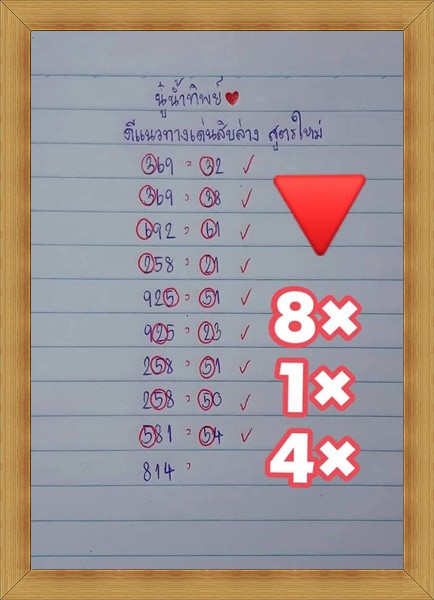 นู๋น้ำทิพย์❤
ตีแนวทางเด่นสิบล่าง สูตรใหม่
369 = 32 ✓
369 = 38 ✓
692 = 61 ✓
258 = 21 ✓
925 = 51 ✓
925 = 23 ✓
258 = 51 ✓
258 = 50 ✓
581 = 54 ✓
814 =
8×
1×
4×